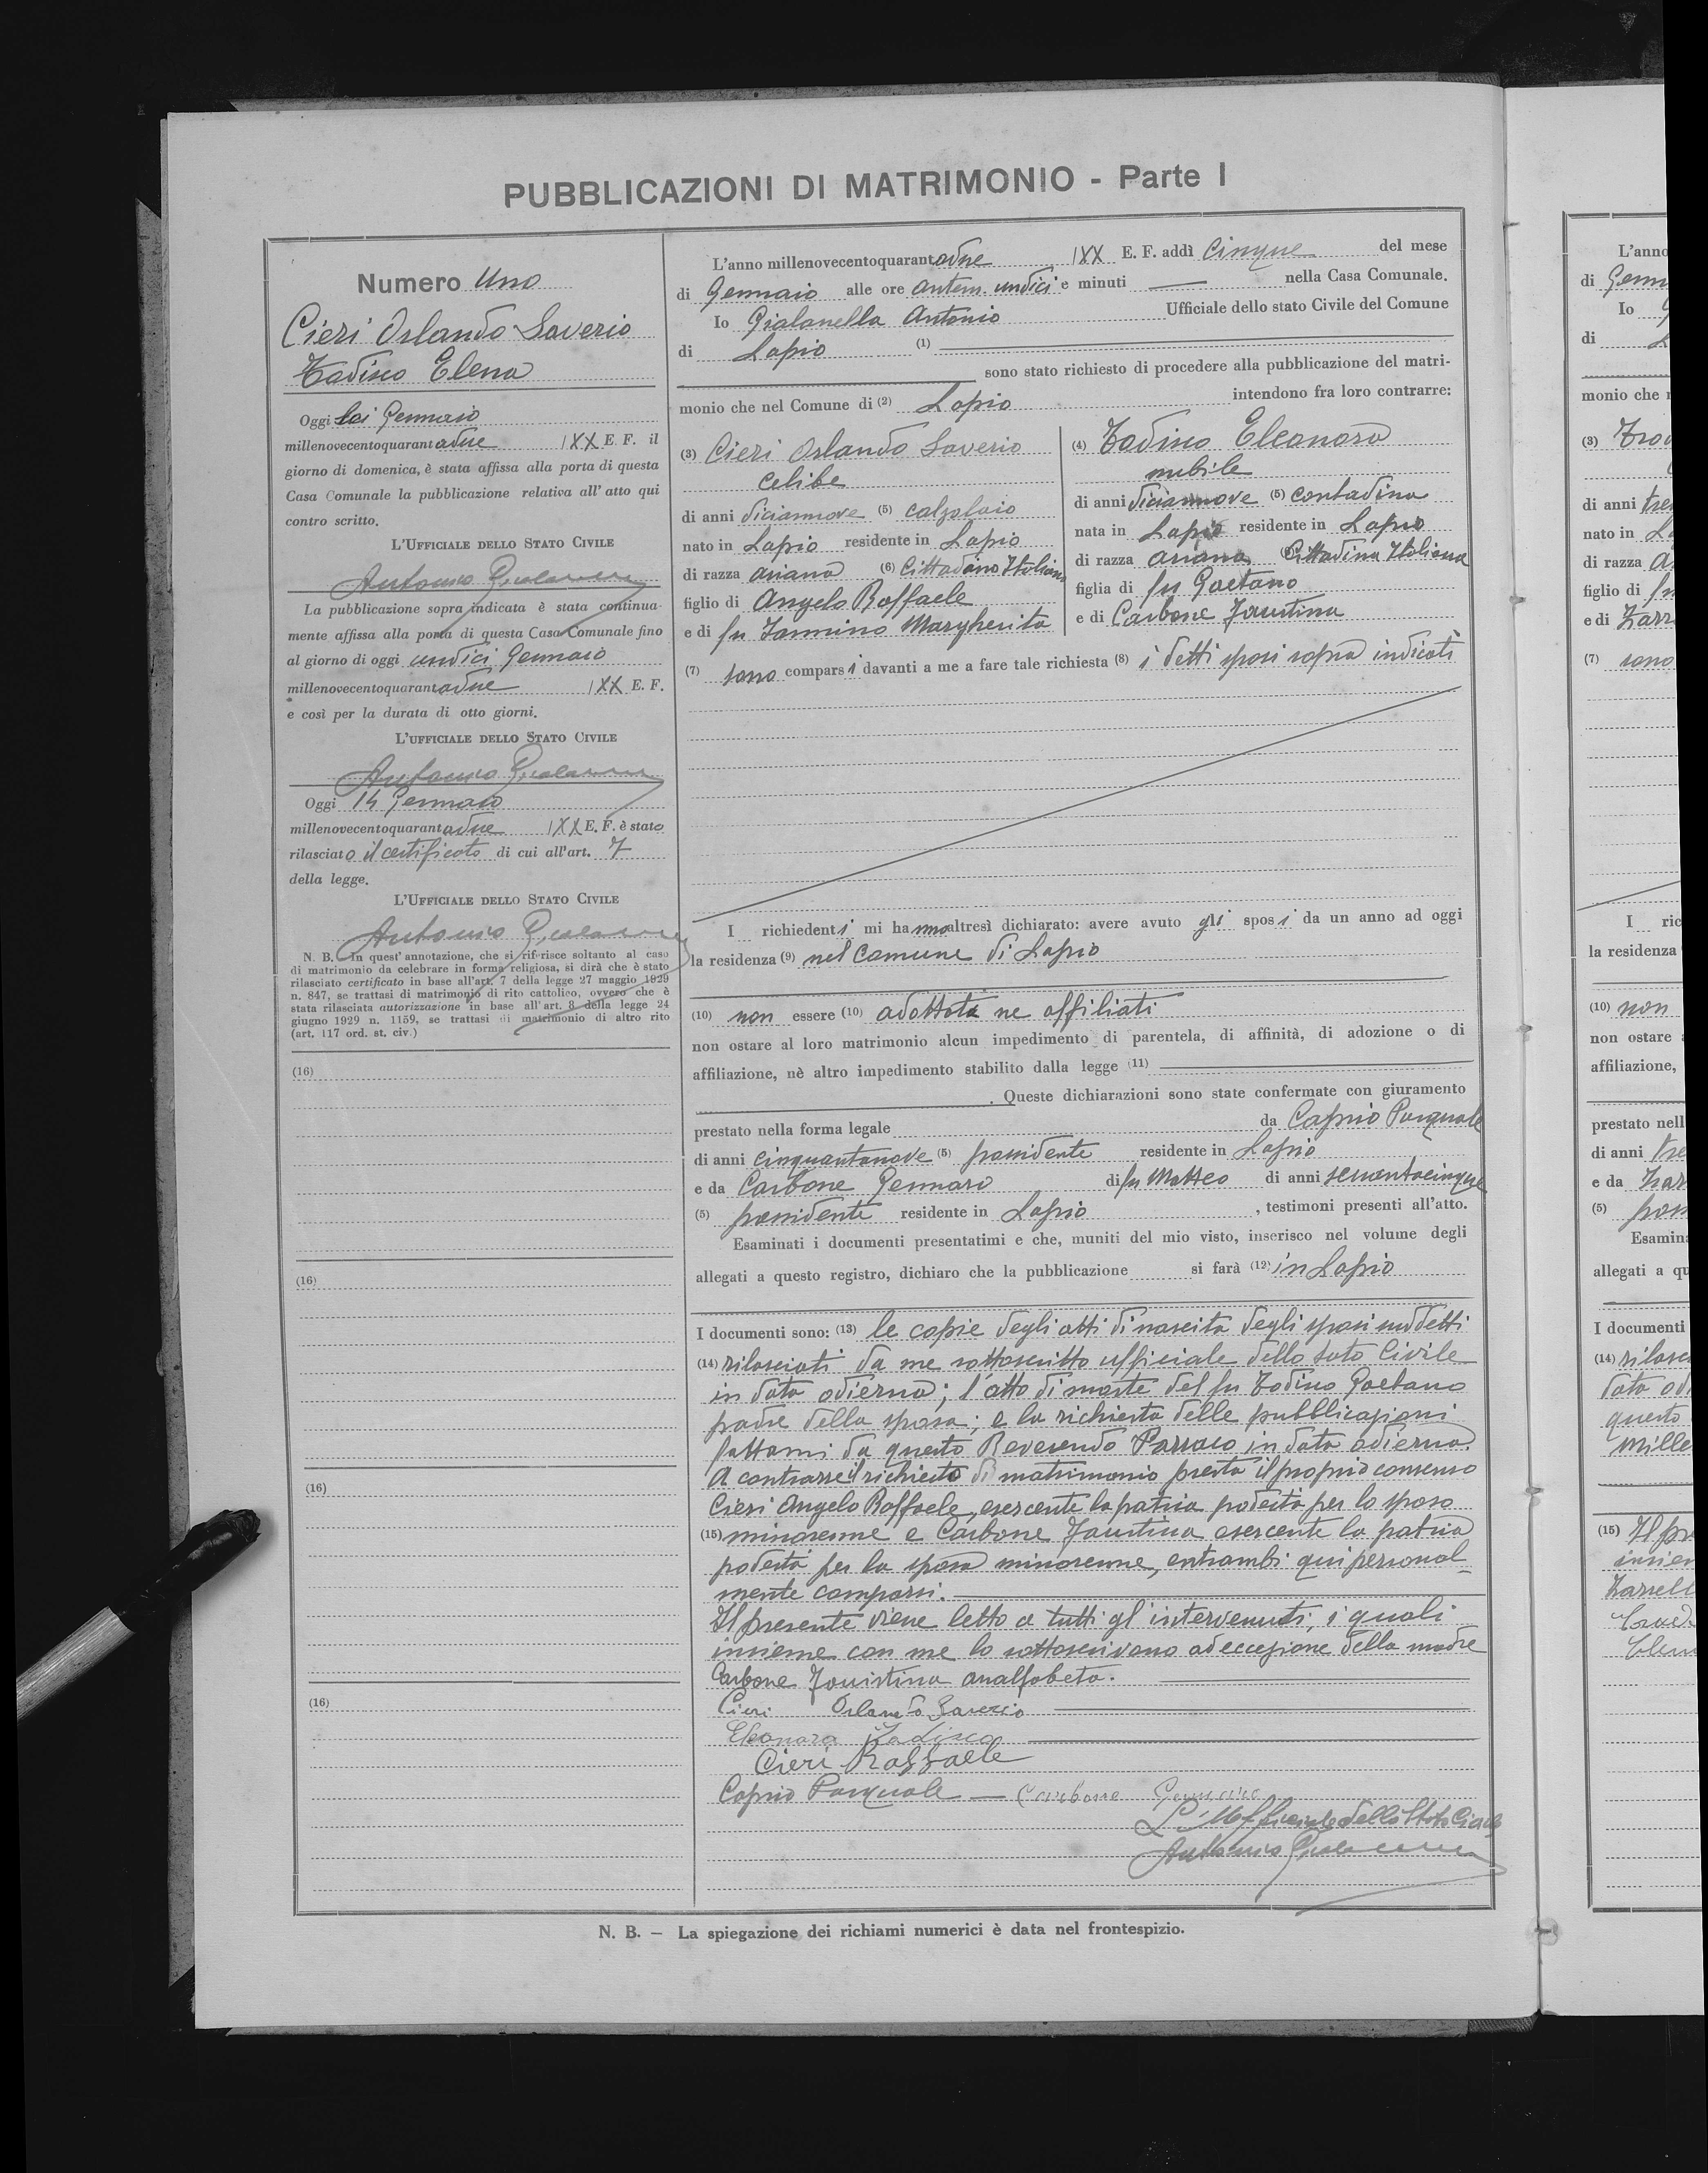 PUBBLICAZIONI DI MATRIMONIO - Parte I
Numero Uno
Cieri Orlando Saverio
Zadino Elena
Oggi Sei Gennaio
millenovecentoquarantadue IXX E. F. il
giorno di domenica, è stata affissa alla porta di questa
Casa Comunale la pubblicazione relativa all' atto qui
contro scritto.
L'UFFICIALE DELLO STATO CIVILE
Antonio
La pubblicazione sopra indicata è stata continua-
mente affissa alla porta di questa Casa Comunale fino
al giorno di oggi undici Gennaio
millenovecentoquarantadue IXX E. F.
e così per la durata di otto giorni.
L'UFFICIALE DELLO STATO CIVILE
Antonio
Oggi 14 Gennaio
millenovecentoquarantadue IXX E. F. è stato
rilasciato il certificato di cui all'art. 7
della legge.
L'UFFICIALE DELLO STATO CIVILE
Antonio
N. B. In quest' annotazione, che si riferisce soltanto al caso
di matrimonio da celebrare in forma religiosa, si dirà che è stato
rilasciato certificato in base all'art. 7 della legge 27 maggio 1929
n. 847, se trattasi di matrimonio di rito cattolico, ovvero che è
stata rilasciata autorizzazione in base all'art. 8 della legge 24
giugno 1929 n. 1159, se trattasi di matrimonio di altro rito
(art. 117 ord. st. civ.)
(16)
(16)
(16)
(16)
L'anno millenovecentoquarantadue IXX E. F. addì Cinque del mese
di Gennaio alle ore antem. undici e minuti — nella Casa Comunale.
Io Pialanella Antonio Ufficiale dello stato Civile del Comune
di Lapio (1)
sono stato richiesto di procedere alla pubblicazione del matri-
monio che nel Comune di (2) Lapio intendono fra loro contrarre:
(3) Cieri Orlando Saverio
celibe
di anni diciannove (5) calzolaio
nato in Lapio residente in Lapio
di razza ariana (6) Cittadino Italiano
figlio di Angelo Raffaele
e di fu Iannino Margherita
(4) Zadino Eleonora
nubile
di anni diciannove (5) contadina
nata in Lapio residente in Lapio
di razza ariana Cittadina Italiana
figlia di fu Gaetano
e di Carbone Faustina
(7) sono comparsi davanti a me a fare tale richiesta (8) i detti sposi sopra indicati
I richiedenti mi hanno altresì dichiarato: avere avuto gli sposi da un anno ad oggi
la residenza (9) nel Comune di Lapio
(10) non essere (10) adottati ne affiliati
non ostare al loro matrimonio alcun impedimento di parentela, di affinità, di adozione o di
affiliazione, nè altro impedimento stabilito dalla legge (11)
. Queste dichiarazioni sono state confermate con giuramento
prestato nella forma legale da Caprio Pasquale
di anni cinquantanove (5) possidente residente in Lapio
e da Carbone Gennaro di fu Matteo di anni sessantacinque
(5) possidente residente in Lapio , testimoni presenti all'atto.
Esaminati i documenti presentatimi e che, muniti del mio visto, inserisco nel volume degli
allegati a questo registro, dichiaro che la pubblicazione si farà (12) in Lapio
I documenti sono: (13) le copie degli atti di nascita degli sposi suddetti
(14) rilasciati da me sottoscritto ufficiale dello stato Civile
in data odierna; l'atto di morte del fu Zadino Gaetano
padre della sposa; e la richiesta delle pubblicazioni
fattami da questo Reverendo Parroco in data odierna.
A contrarre il richiesto di matrimonio presta il proprio consenso
Cieri Angelo Raffaele, esercente la patria podestà per lo sposo
(15) minorenne e Carbone Faustina esercente la patria
podestà per la sposa minorenne, entrambi qui personal-
mente comparsi.
Il presente viene letto a tutti gl'intervenuti, i quali
insieme con me lo sottoscrivono ad eccezione della madre
Carbone Faustina analfabeta.
Cieri Orlando Saverio
Eleonora Zadino
Cieri Raffaele
Caprio Pasquale — Carbone Gennaro
L'Ufficiale dello Stato Civile
Antonio
N. B. — La spiegazione dei richiami numerici è data nel frontespizio.
L'anno
di Genn
Io
di
monio che
(3)
di anni tre
nato in
di razza
figlio di
e di
(7) sono
I ric
la residenza
(10) non
non ostare
affiliazione,
prestato nell
di anni
e da
(5)
Esamin
allegati a qu
I documenti
(14)
questo
mille
(15) Il